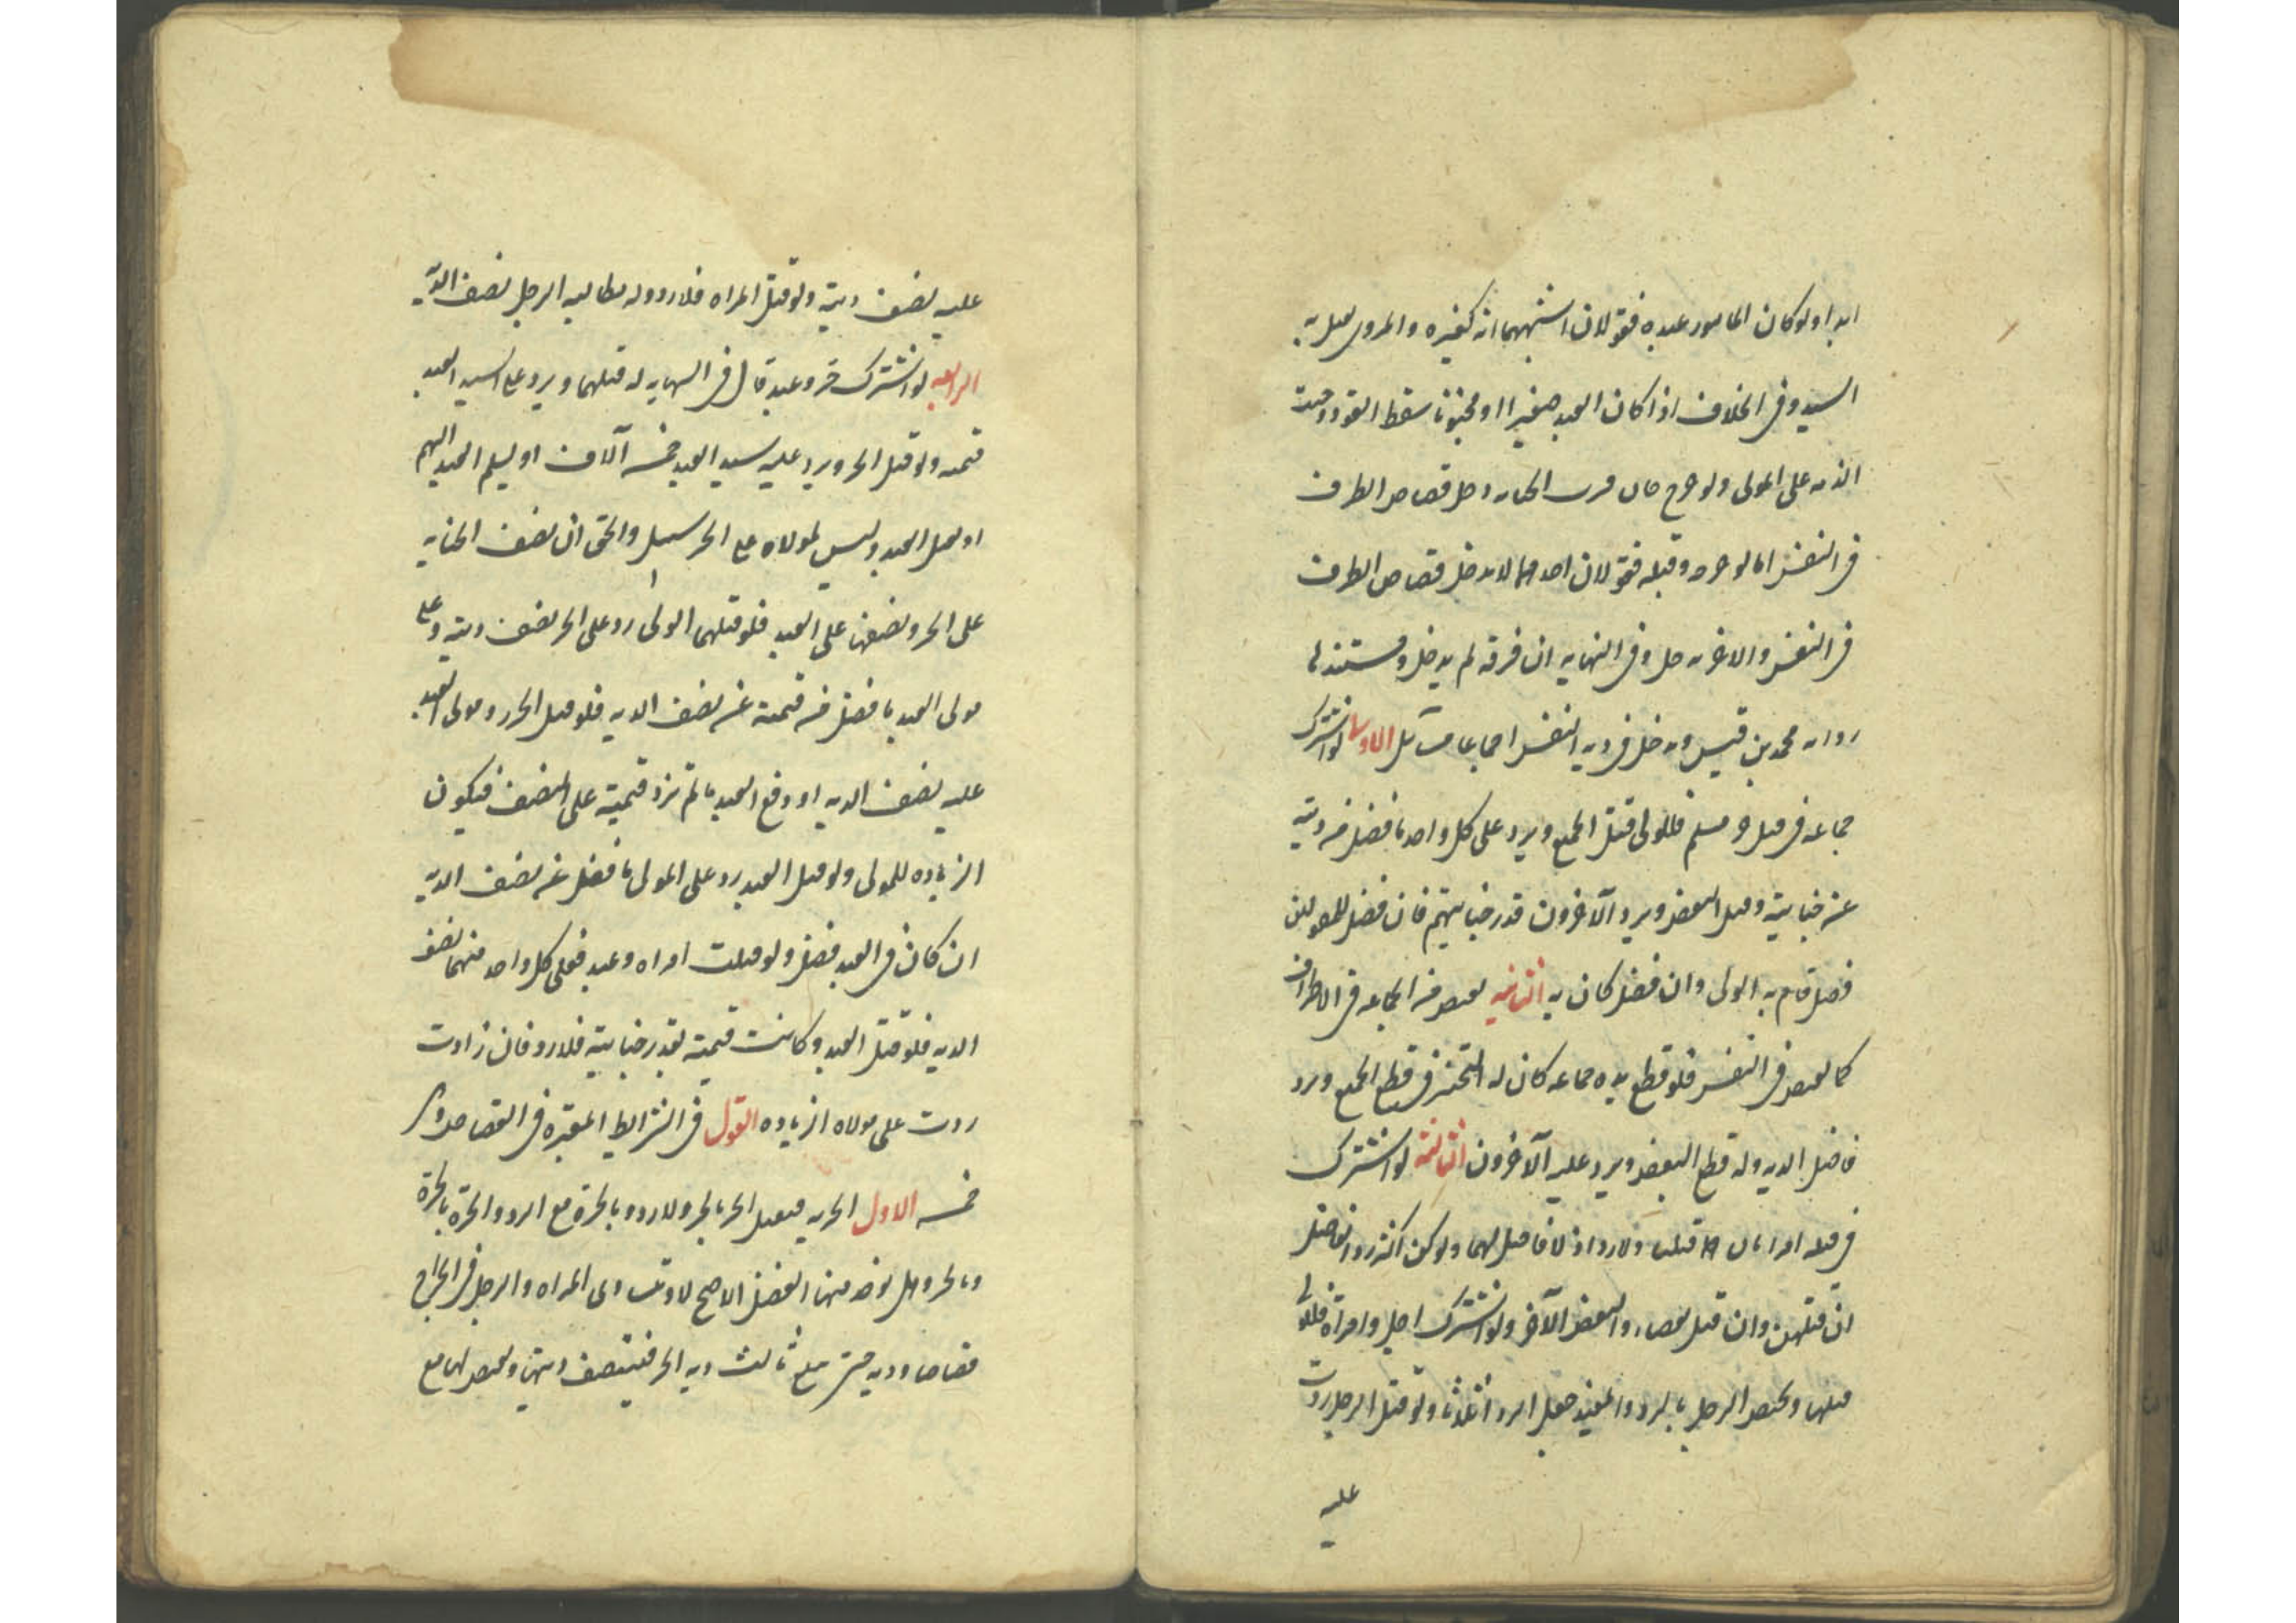 ابدا ولو كان المامور عبده فقولان اشبههما انه كغيره والمروي يقتل به
السيد وفي الخلاف اذا كان العبد صغيرا او مجنونا سقط القود ووجبت
الديه على المولى ولو جرح جان فسرت الجنايه دخل قصاص الطرف
في النفس اما لو جرحه وقتله فقولان احدهما لا يدخل قصاص الطرف
في النفس والاخر يدخل وفي النهايه ان فرقه لم يدخل ومستندها
روايه محمد بن قيس ويدخل في ديه النفس اجماعا مسائل الاولى لو اشترك
جماعه في قتل حر مسلم فللولي قتل الجميع ويرد على كل واحد ما فضل من ديته
عن جنايته وقتل البعض ويرد الآخرون قدر جنايتهم فان فضل للمقتولين
فضل قام به الولي وان فضل كان به الثانيه يقتص من الجماعه في الاطراف
كما يقتص في النفس فلو قطع يده جماعه كان له التخير في قطع الجميع ويرد
فاضل الديه وله قطع البعض ويرد عليه الآخرون الثالثه لو اشترك
في قتله امراتان قتلتا ولا رد اذ لا فاضل لهما ولو كن اكثر رد الفاضل
ان قتلهن وان قتل بعضا رد البعض الآخر ولو اشترك رجل وامرأة فللولي
قتلهما ويختص الرجل بالرد والمفيد جعل الرد اثلاثا ولو قتل الرجل ردت
عليه
عليه نصف ديته ولو قتل المراه فلا رد وله مطالبه الرجل نصف الديه
الرابعه لو اشترك حر وعبد قال في النهايه له قتلهما ويرد على السيد العبد
قيمته ولو قتل الحر ويرد عليه سيد العبد خمسه آلاف او يسلم العبد اليهم
او يقتل العبد وليس لمولاه على الحر سبيل والحق ان نصف الجنايه
على الحر ونصفها على العبد فلو قتلهما الولي رد على الحر نصف ديته وعلى
مولى العبد ما فضل من قيمته عن نصف الديه فلو قتل الحر رد مولى العبد
عليه نصف الديه او دفع العبد ما لم تزد قيمته على النصف فيكون
الزياده للمولى ولو قتل العبد رد على المولى ما فضل عن نصف الديه
ان كان في العبد فضل ولو قتلت امراه وعبد فعلى كل واحد منهما نصف
الديه فلو قتل العبد وكانت قيمته بقدر جنايته فلا رد فان زادت
ردت على مولاه الزياده القول في الشرايط المعتبره في القصاص وهي
خمسه الاول الحريه فيقتل الحر بالحر ولا رد وبالحرة مع الرد والحرة بالحرة
وبالحر وهل يوخذ منها الفضل الاصح لا وتتساوى المراه والرجل في الجراح
قصاصا وديه حتى يبلغ ثالث ديه الحر فينتصف ديتها ويقتص لها مع